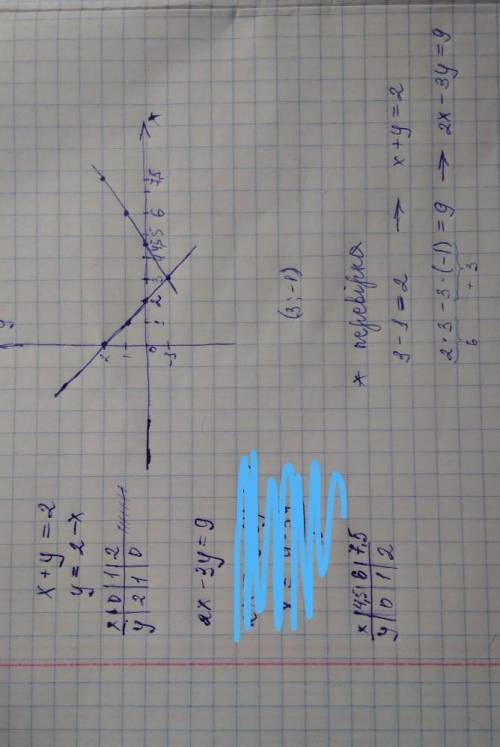 x + y = 2
y = 2 - x
x | 0 | 1 | 2
y | 2 | 1 | 0
2x - 3y = 9
x | 4,5 | 6 | 7,5
y | 0 | 1 | 2
y
2
1
0 1 2 3 4 4,5 5 6 7,5 x
-1
(3; -1)
* перевірка
3 - 1 = 2 → x + y = 2
2 · 3 - 3 · (-1) = 9 → 2x - 3y = 9
6 + 3